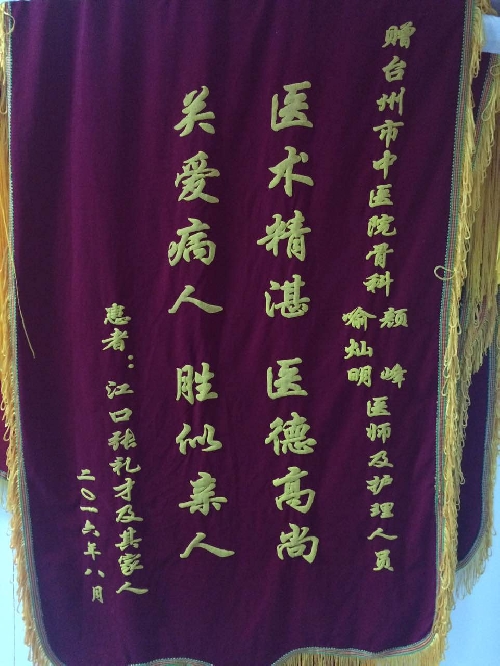 赠台州市中医院骨科 颜峰 喻灿明 医师及护理人员
医术精湛 医德高尚
关爱病人 胜似亲人
患者：江口张礼才及其家人
二〇一六年八月